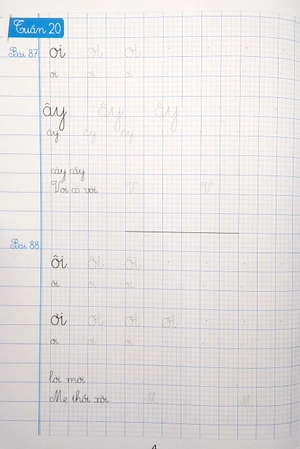 Tuần 20
Bài 87 oi oi oi
oi oi oi
ây ây ây
ây ây ây
cấy
Voi có vòi V V
Bài 88 ôi ôi ôi
ôi ôi ôi
ơi ơi ơi ơi
ơi ơi ơi
lời mời
Mẹ thổi xôi M M
4